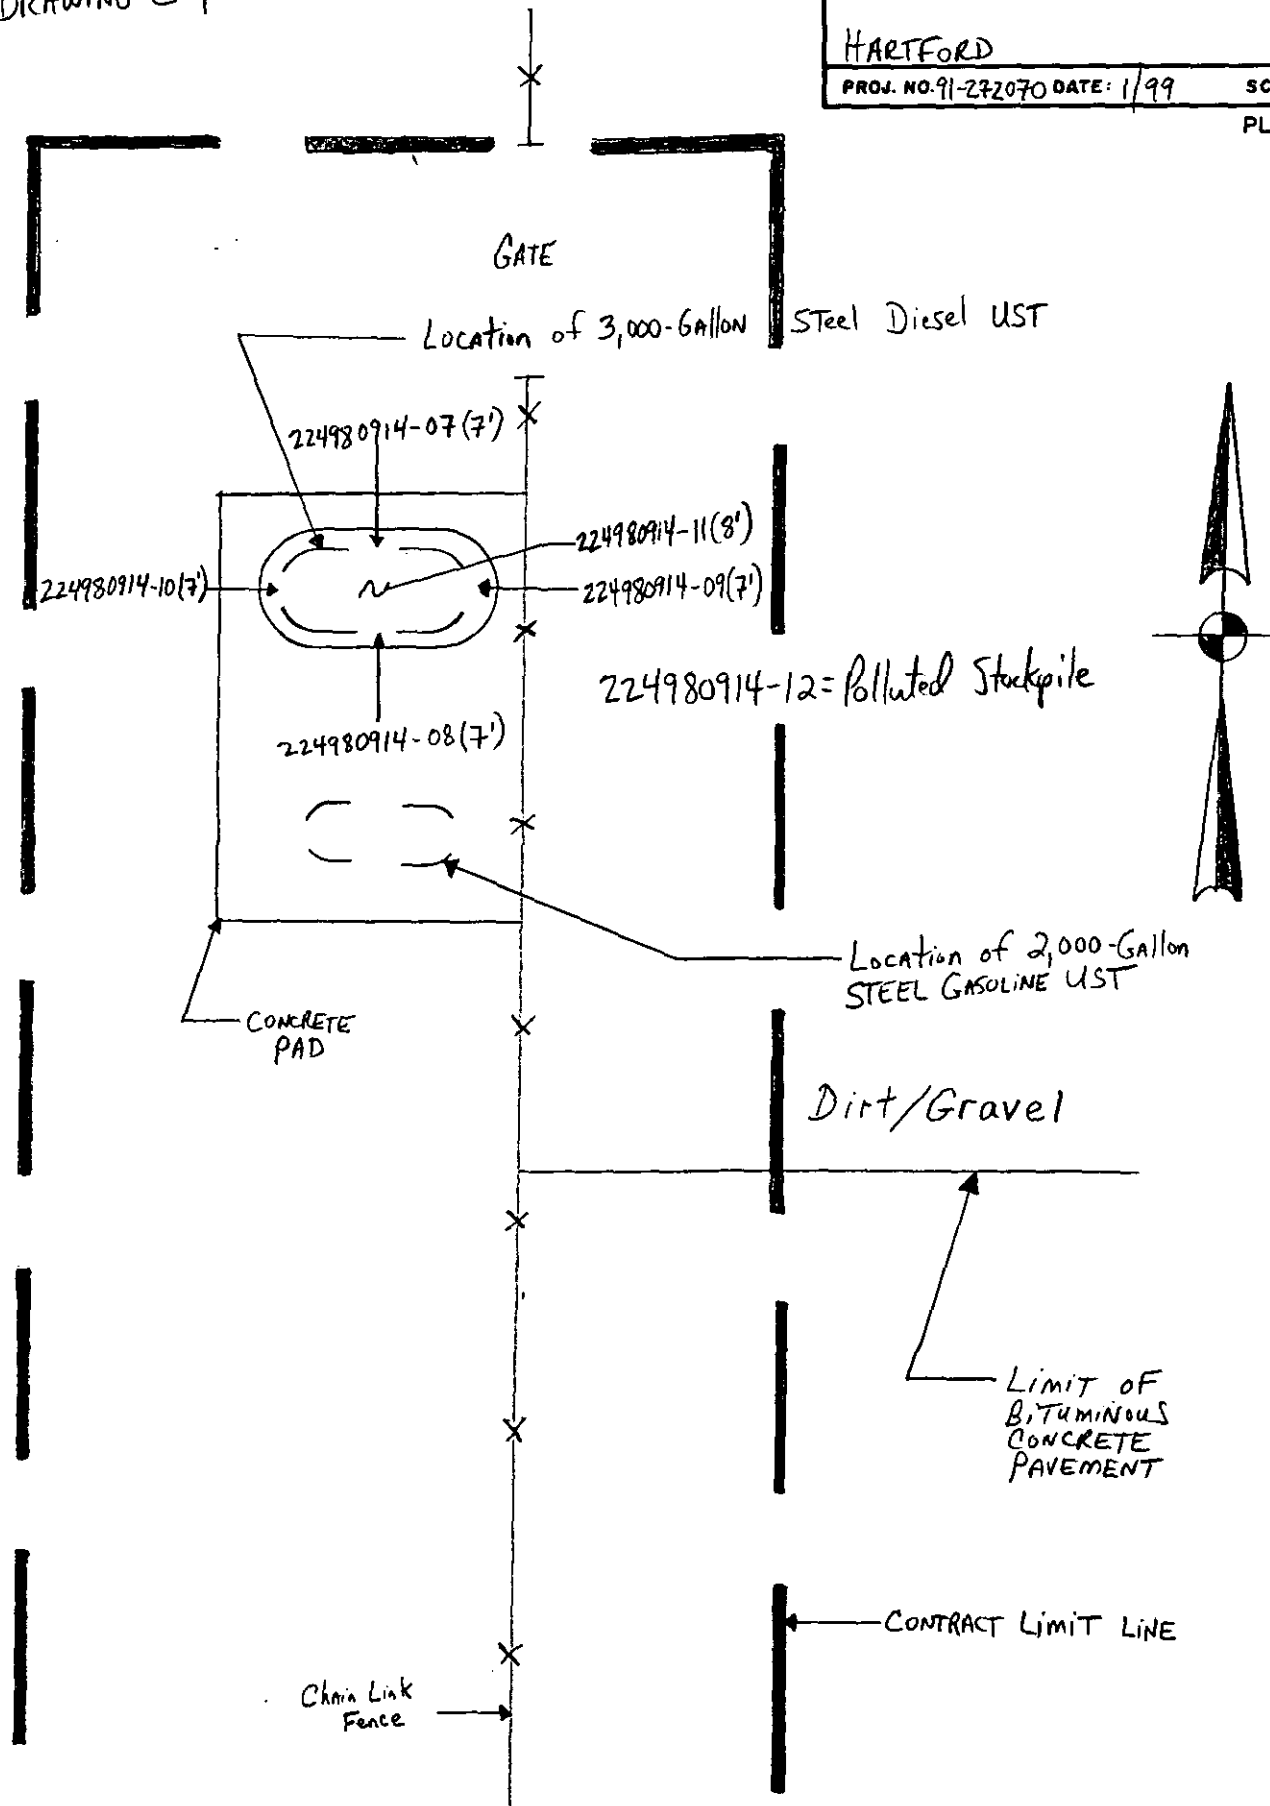 DRAWING
HARTFORD
PROJ. NO. 91-272070 DATE: 1/99 SC
PL
GATE
Location of 3,000-Gallon Steel Diesel UST
224980914-07(7')
224980914-11(8')
224980914-10(7')
224980914-09(7')
224980914-12=Polluted Stockpile
224980914-08(7')
Location of 2,000-Gallon
STEEL GASOLINE UST
CONCRETE
PAD
Dirt/Gravel
LIMIT OF
BITUMINOUS
CONCRETE
PAVEMENT
CONTRACT LIMIT LINE
Chain Link
Fence